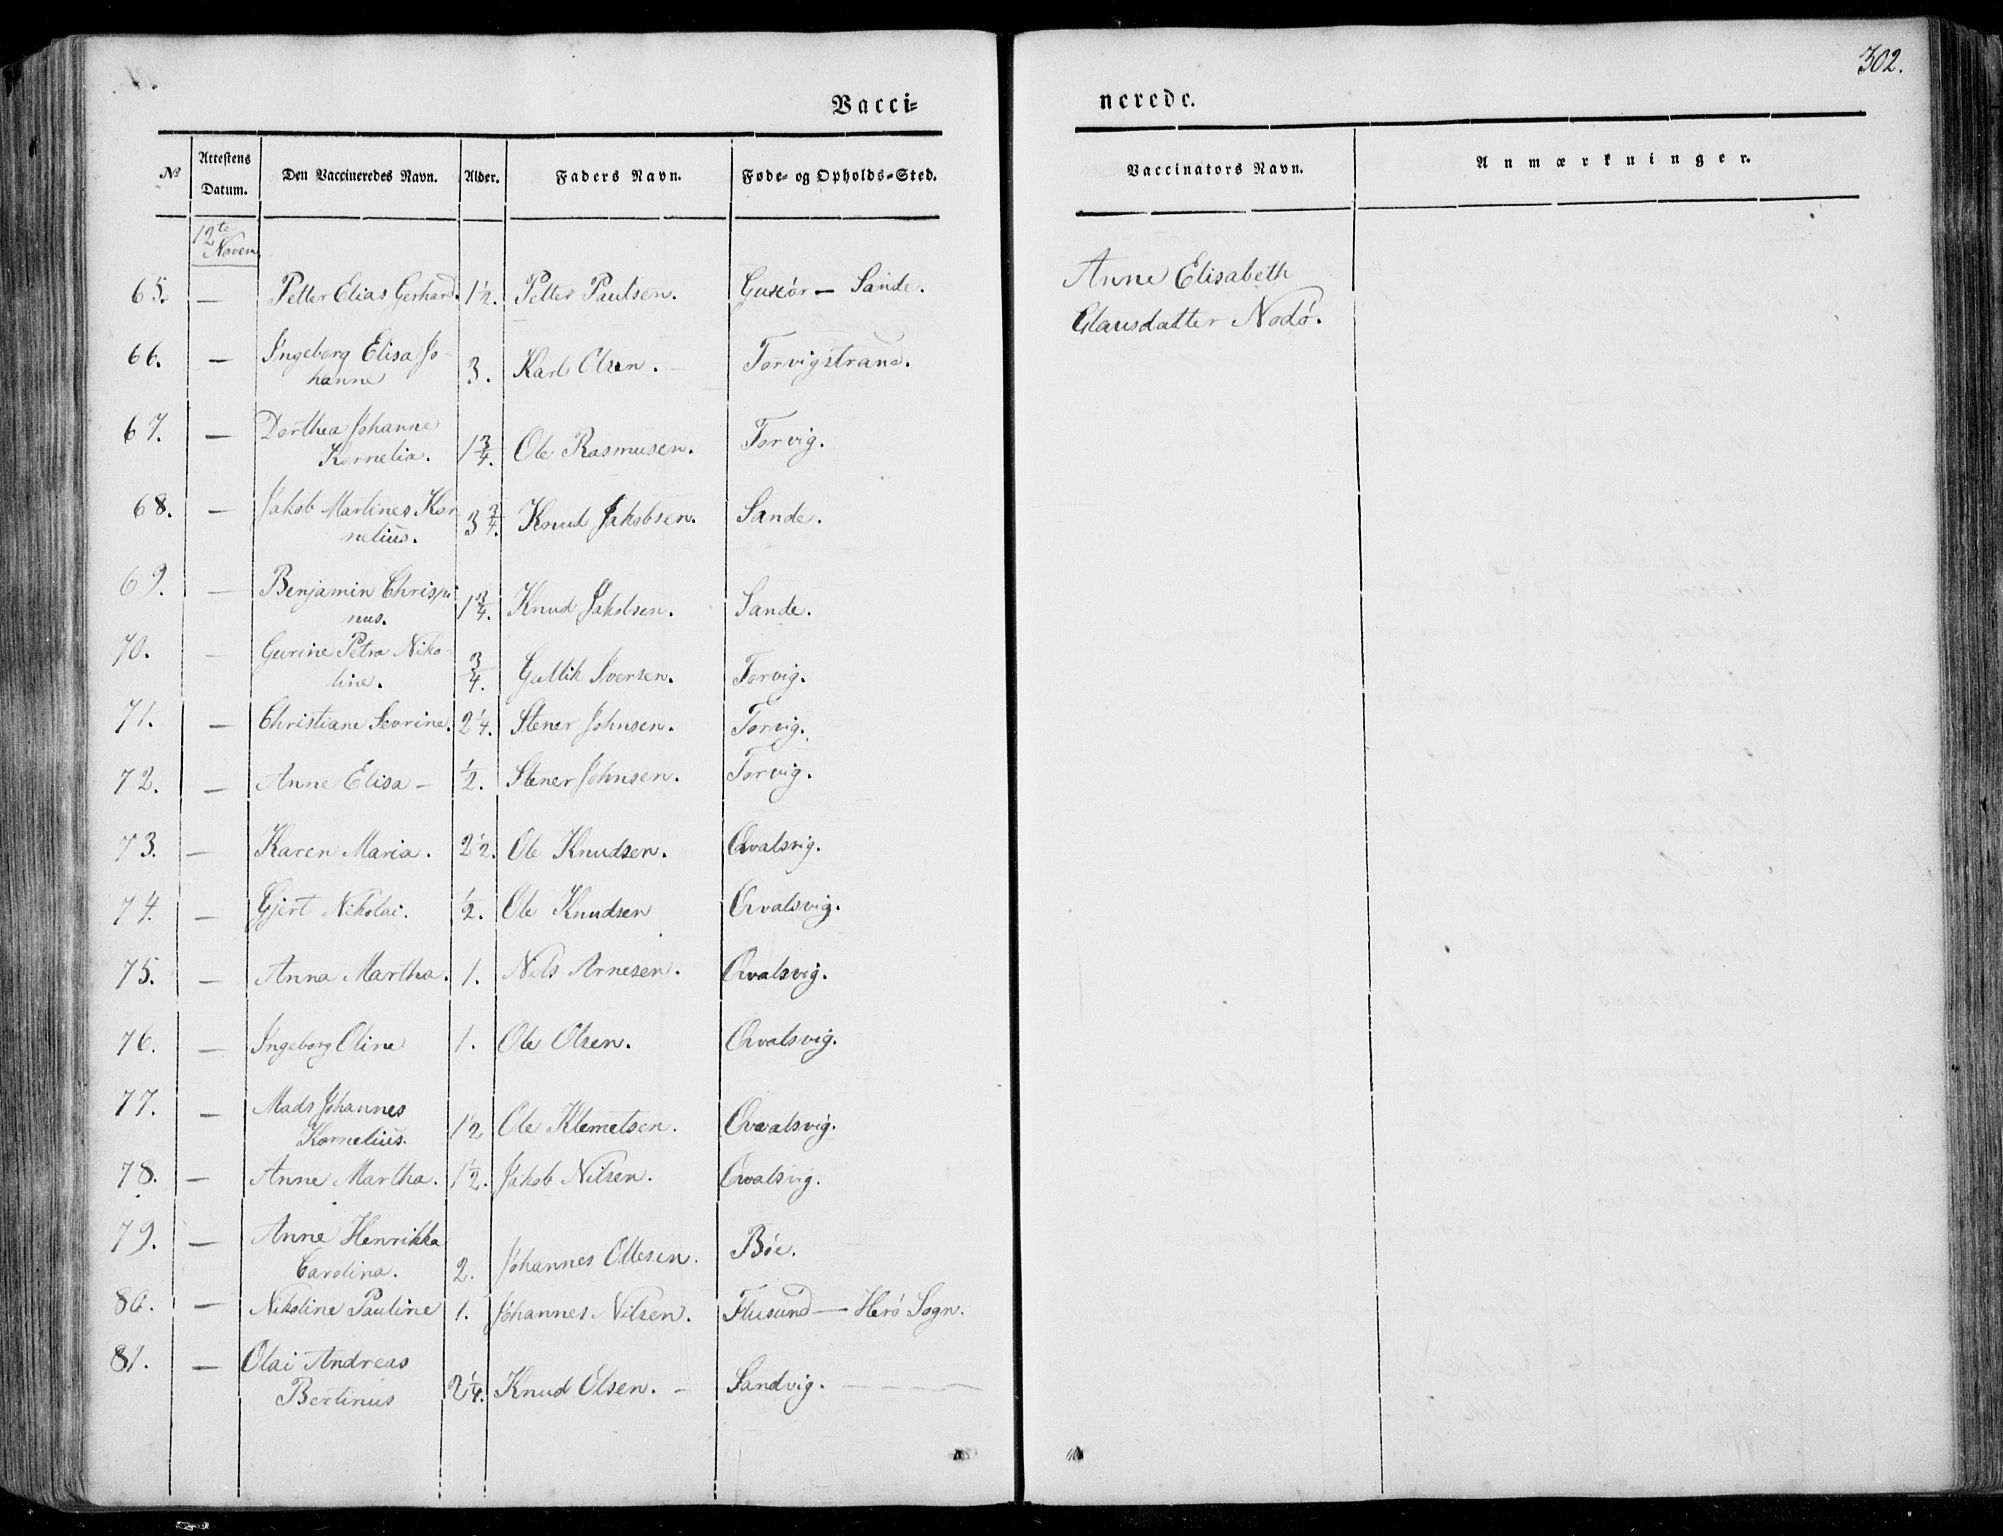 302.
Vacci-
nerede.
No Attestens Datum. Den Vaccineredes Navn. Alder. Faders Navn. Føde- og Opholds-Sted. Vaccinators Navn. Anmærkninger.
12te
Novem
65. — Petter Elias Gerhard. 1½. Petter Paulsen. Gurskør — Sande. Anne Elisabeth
Clausdatter Nodø.
66. — Ingeborg Elisa Jo-
hanne 3. Karl Olsen. Torvigstrand.
67. — Dorthea Johanne
Kornelia. 1¾. Ole Rasmusen. Torvig.
68. — Jakob Martines Kor
nelius. 3¾. Knud Jakobsen. Sande.
69. — Benjamin Chrispi
nus. 1¾. Knud Jakobsen. Sande.
70. — Gurine Petra Niko-
line. ¾. Gullik Iversen. Torvig.
71. — Christiane Sevrine. 2¼. Stener Johnsen. Torvig.
72. — Anne Elisa — ½. Stener Johnsen. Torvig.
73. — Karen Maria. 2½. Ole Knudsen. Qvalsvig.
74. — Gjert Nikolai. ½. Ole Knudsen Qvalsvig.
75. — Anna Martha. 1. Nils Arnesen. Qvalsvig.
76. — Ingeborg Oline 1. Ole Olsen. Qvalsvig.
77. — Mads Johannes
Kornelius. 1½ Ole Klemetsen. Qvalsvig.
78. — Anne Martha. 1½. Jakob Nilsen. Qvalsvig.
79. — Anne Henrikka
Carolina. 2. Johannes Ollesen. Bøe.
80. — Nikoline Pauline 1. Johannes Nilsen. Flusund — Herø Sogn.
81. — Olai Andreas
Bertinus 2¼. Knud Olsen. — Sandvig. — — — —